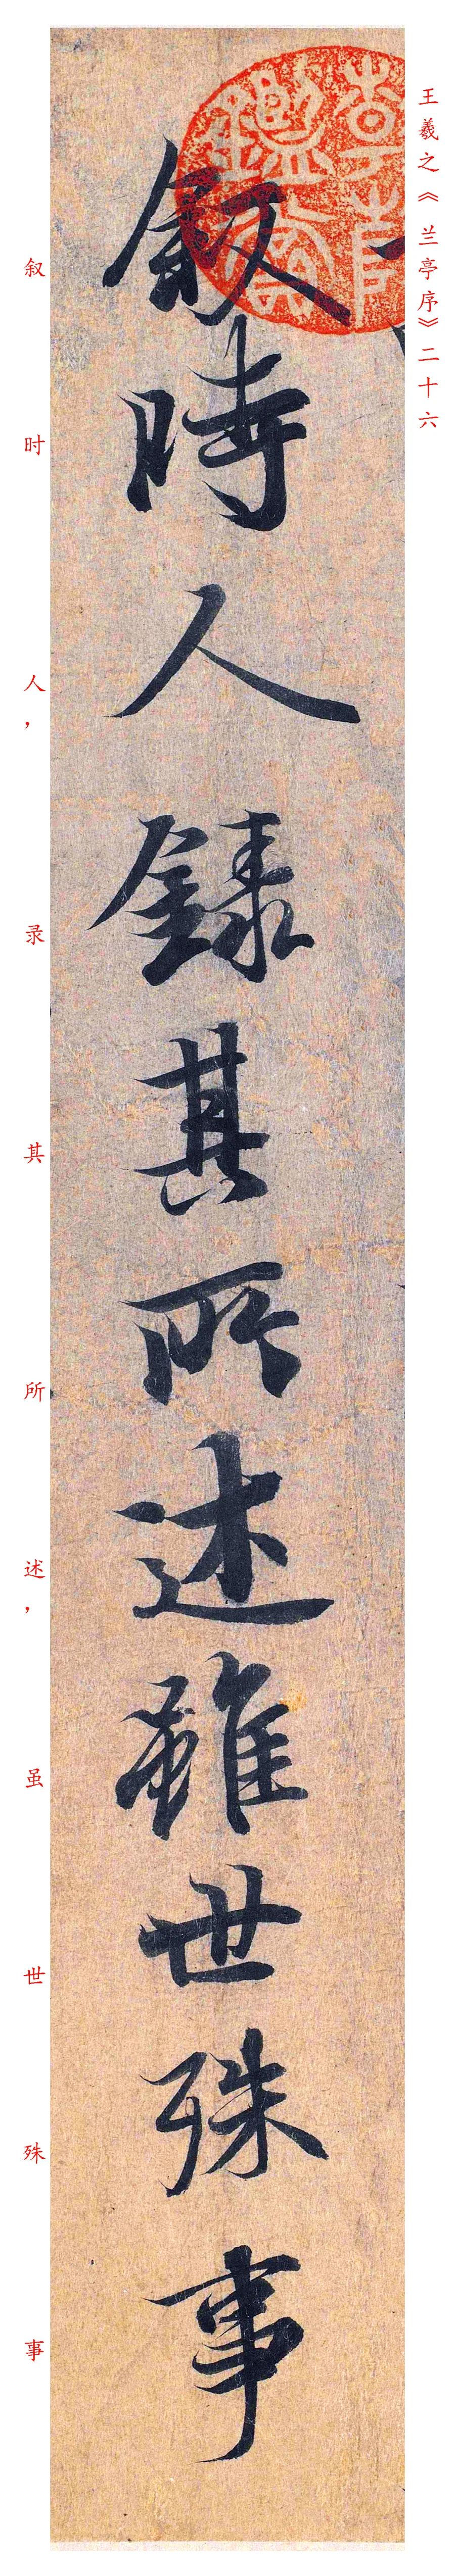 王羲之《兰亭序》二十六
敘時人錄其所述雖世殊事
叙时人，录其所述，虽世殊事